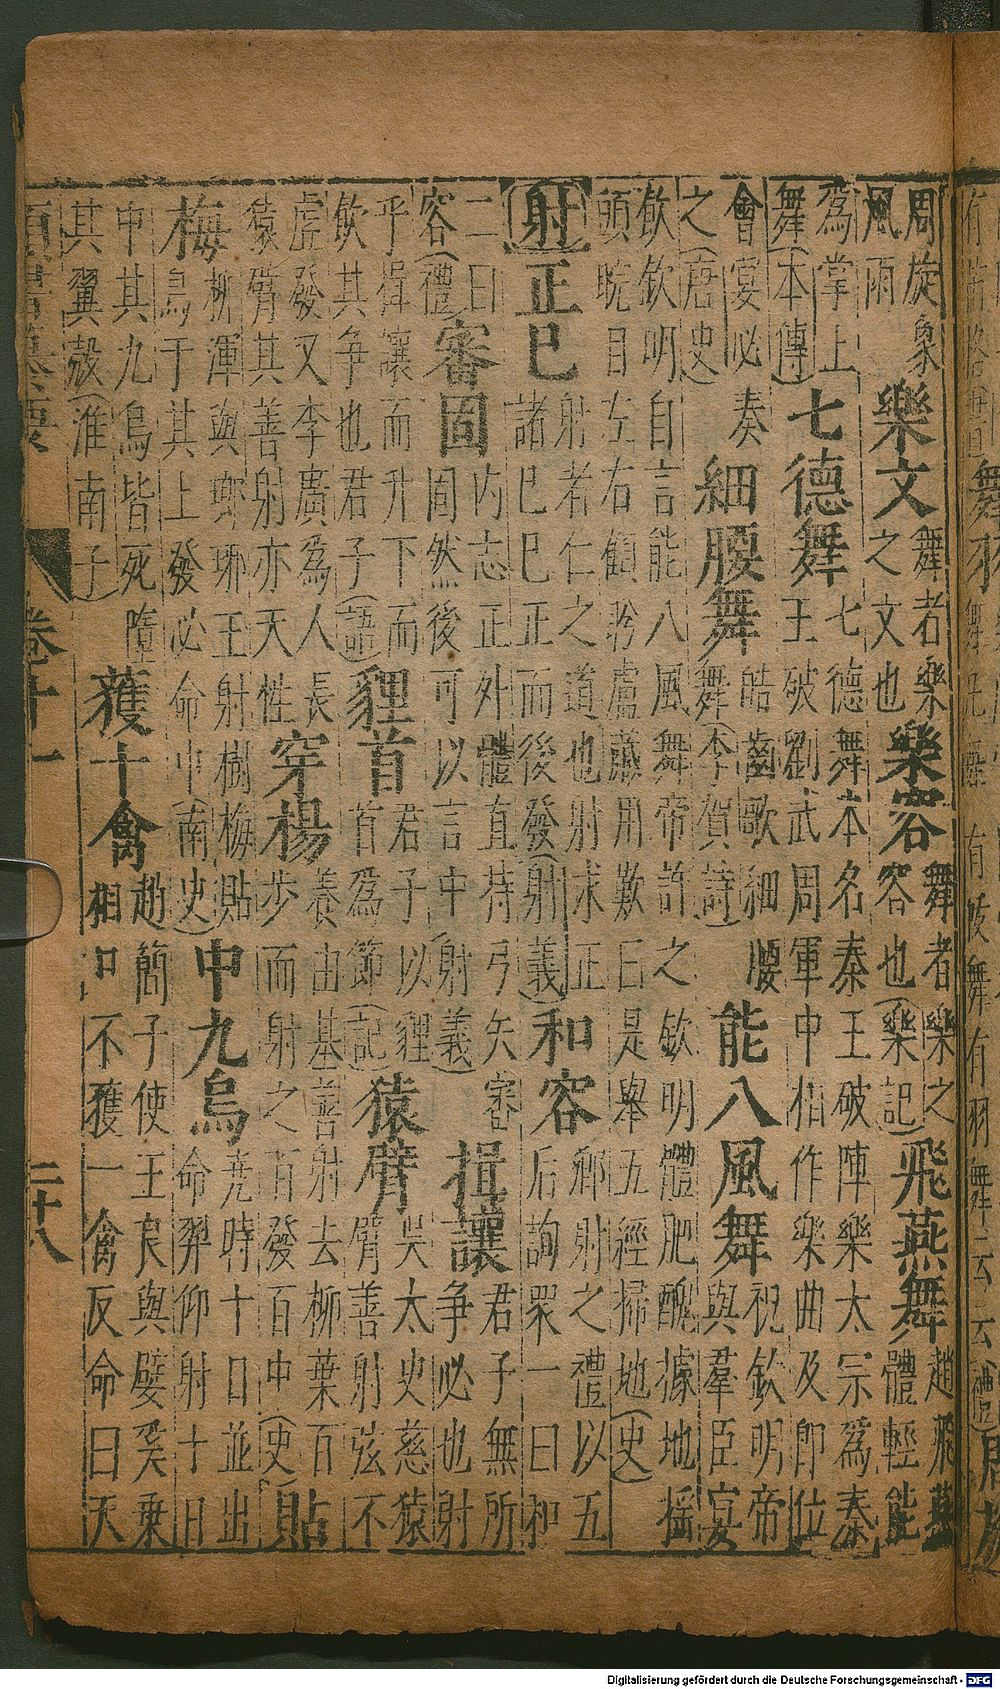 周旋象
風雨
樂文
舞者樂
之文也
樂容
舞者樂之
容也(樂記)
飛燕舞
趙飛燕
體輕能
為掌上
舞(本傳)
七德舞
七德舞本名秦王破陣樂太宗為秦
王破劉武周軍中相作樂曲及即位
會宴必奏
之(唐史)
細腰舞
皓齒歌細腰
舞(李賀詩)
能八風舞
祝欽明帝
與羣臣宴
飲欽明自言能八風舞帝許之欽明體肥醜據地搖
頭睆目左右顧眄盧藏用歎曰是舉五經掃地(史)
射
正巳
射者仁之道也射求正
諸巳巳正而後發(射義)
和容
鄉射之禮以五
后詢眾一曰和
二曰
容(禮)
審固
内志正外體直持弓矢審
固然後可以言中(射義)
揖讓
君子無所
爭必也射
乎揖讓而升下而
飲其爭也君子(語)
貍首
君子以貍
首為節(記)
猿臂
吳太史慈猿
臂善射弦不
虛發又李廣為人長
猿臂其善射亦天性
穿楊
養由基善射去柳葉百
步而射之百發百中(史)
貼
梅
柳渾與琅琊王射樹梅貼
烏于其上發必命中(南史)
中九烏
堯時十日並出
命羿仰射十日
中其九烏皆死隋
其翼殼(淮南子)
獲十禽
趙簡子使王良與嬖奚乘
相口不獲一禽反命曰天
卷十一
二十八
Digitalisierung gefördert durch die Deutsche Forschungsgemeinschaft - DFG